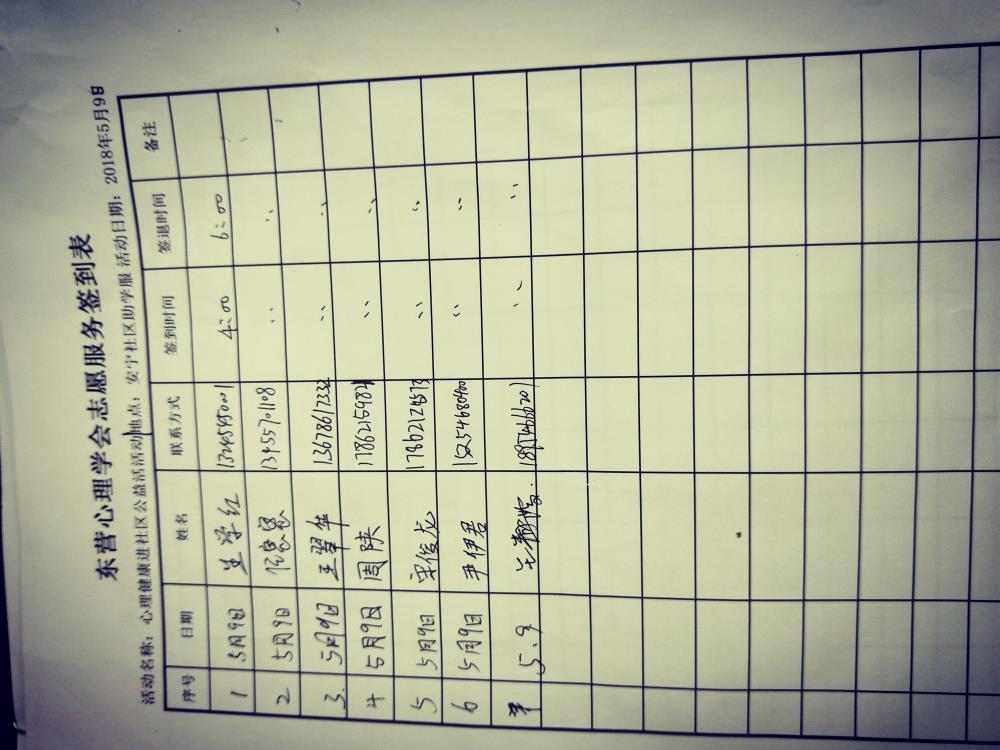 东营心理学会志愿服务签到表
活动名称：心理健康进社区公益活活动地点：安宁社区助学服 活动日期：2018年5月9日
序号 日期 姓名 联系方式 签到时间 签退时间 备注
1 5月9日 学红 4:00 6:00
2 5月9日 13455701108 〃 〃
3. 5月9日 王翠华 13678617332 〃 〃
4 5月9日 周陕 〃 〃
5 5月9日 宋俊龙 17862124573 〃 〃
6 5月9日 尹伊君 15254680400 〃 〃
5.9 18954666201 〃 〃